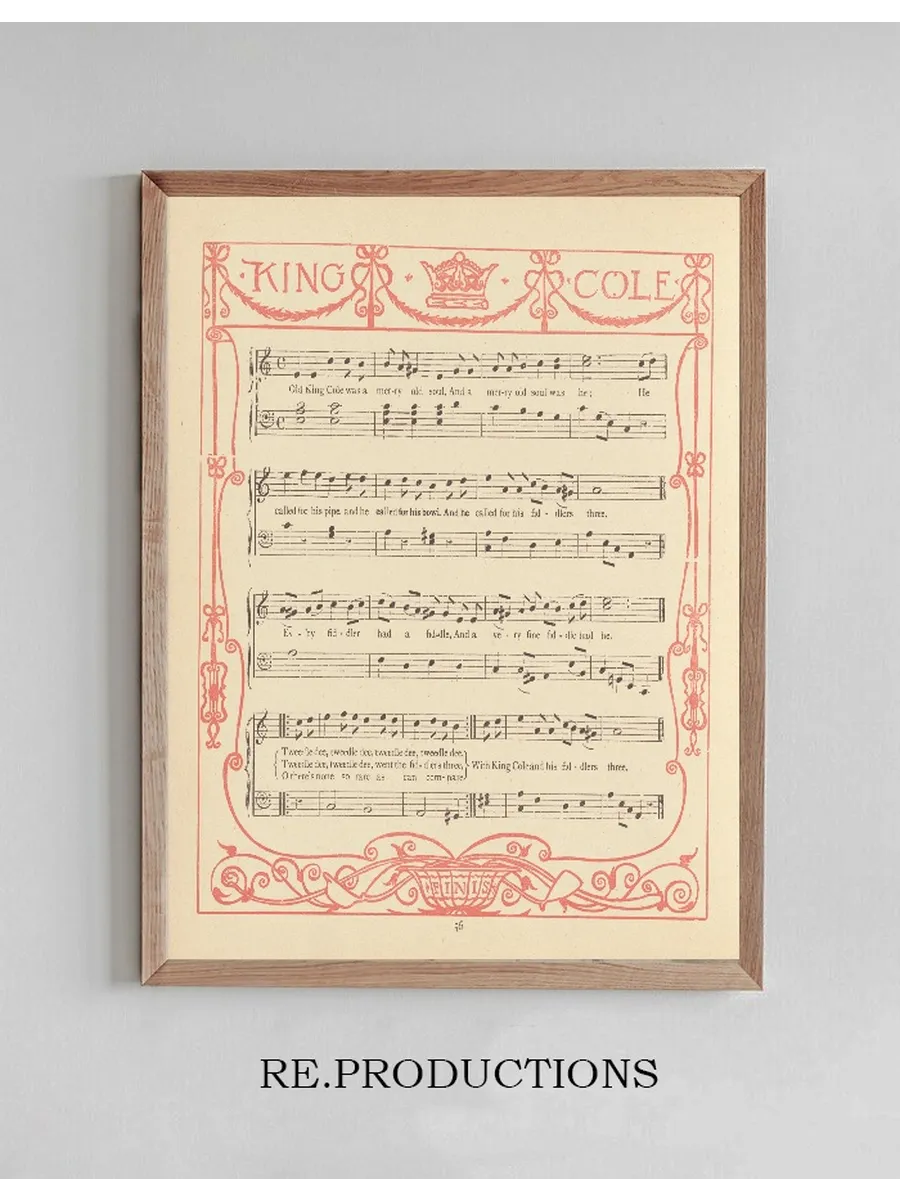 KING COLE
Old King Cole was a mer-ry old soul, And a mer-ry old soul was he; He
called for his pipe and he called for his bowl, And he called for his fid - dlers three.
Ev - 'ry fid - dler had a fid-dle, And a ve - ry fine fid - dle had he.
Twee-dle dee, tweedle dee, tweedle dee, tweedle dee,
Tweedle dee, tweedle dee, went the fid-dlers three,
O there's none so rare as can com-pare
With King Cole and his fid - dlers three.
FINIS
36
RE.PRODUCTIONS